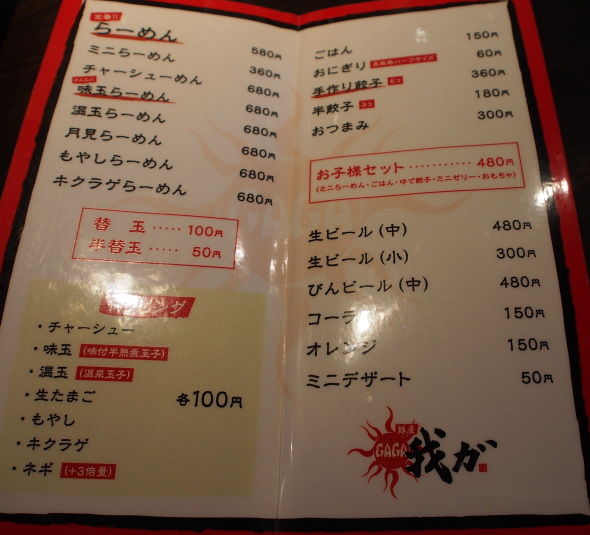 定番!!
らーめん 580円
ミニらーめん 360円
チャーシューめん 680円
味玉らーめん 680円
温玉らーめん 680円
月見らーめん 680円
もやしらーめん 680円
キクラゲらーめん 680円
替玉 ‥‥‥ 100円
半替玉 ‥‥‥ 50円
トッピング
・チャーシュー
・味玉 (味付半熟煮玉子)
・温玉 (温泉玉子)
・生たまご
・もやし
・キクラゲ
・ネギ (+3倍量)
各100円
ごはん 150円
おにぎり 60円
手作り餃子 6コ 360円
半餃子 3コ 180円
おつまみ 300円
お子様セット ‥‥‥‥‥‥ 480円
(ミニらーめん・ごはん・ゆで餃子・ミニゼリー・おもちゃ)
生ビール (中) 480円
生ビール (小) 300円
びんビール (中) 480円
コーラ 150円
オレンジ 150円
ミニデザート 50円
麺屋
GAGA
我が